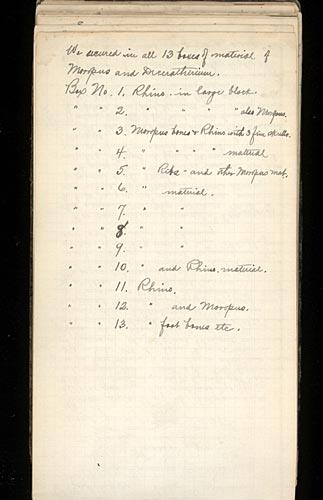 We secured in all 13 boxes of material of
Moropus and Diceratherium.
Box No. 1. Rhino. in large block.
" " 2. " " " " also Moropus.
" " 3. Moropus bones & Rhino with 3 fine skulls.
" " 4. " " " " material
" " 5. " Ribs - and other Moropus mat.
" " 6. " material.
" " 7. " "
" " 8. " "
" " 9. " "
" " 10. " and Rhino. material.
" " 11. Rhino.
" " 12. " and Moropus.
" " 13. " foot bones etc.